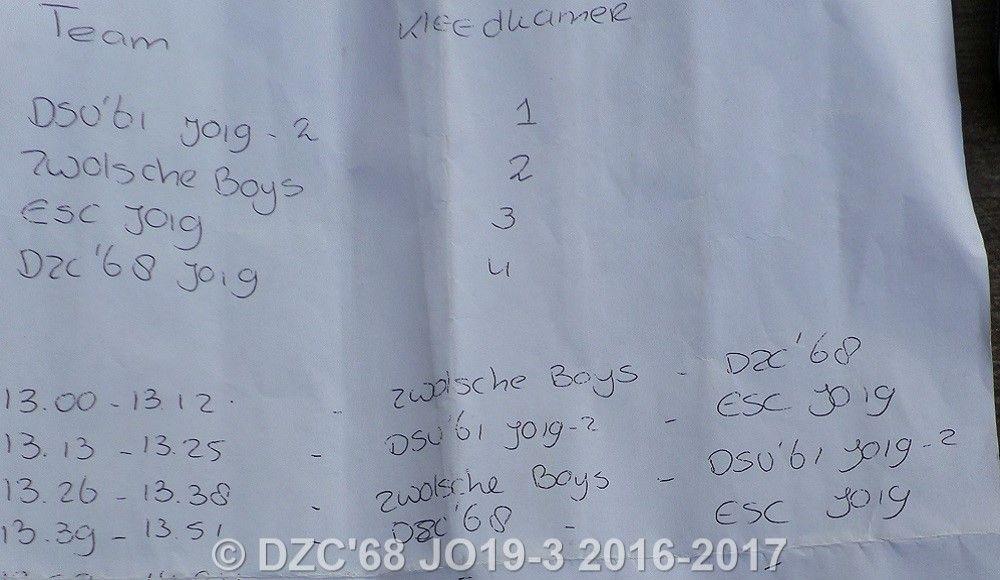 Team Kleedkamer
DSV'61 JO19-2 1
Zwolsche Boys 2
ESC JO19 3
DZC'68 JO19 4
13.00 - 13.12 - Zwolsche Boys - DZC'68
13.13 - 13.25 - DSV'61 JO19-2 - ESC JO19
13.26 - 13.38 - Zwolsche Boys - DSV'61 JO19-2
13.39 - 13.51 - DZC'68 - ESC JO19
© DZC'68 JO19-3 2016-2017